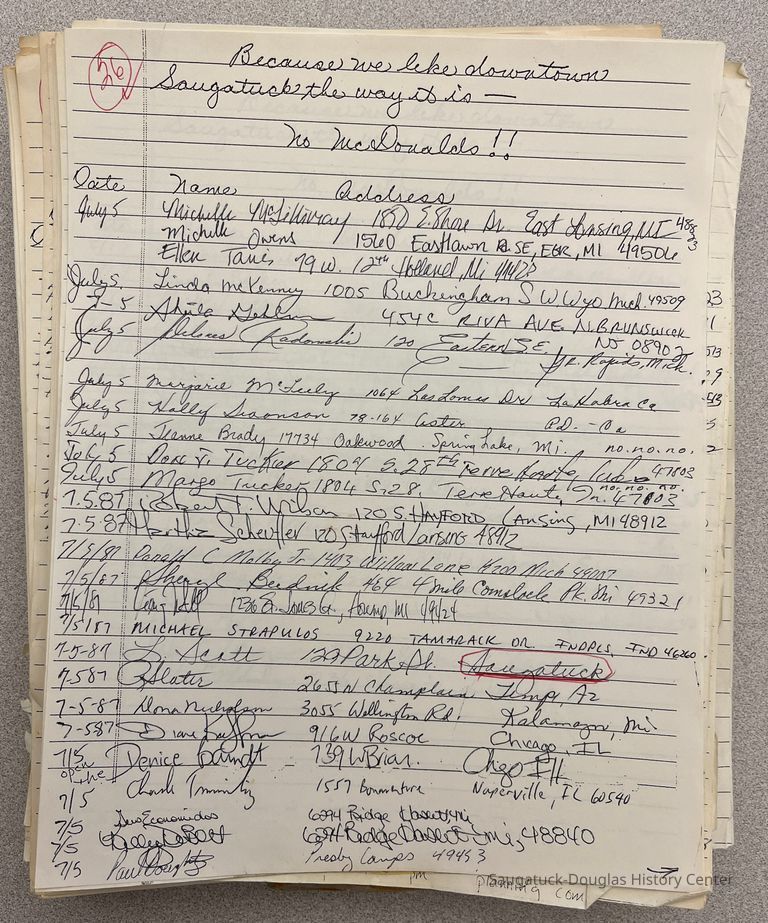 56
Because we like downtown
Saugatuck the way it is —
No McDonalds!!
Date Name Address
July 5 Michelle McGillivray 1850 E. Shore Dr. East Lansing, MI 488 3
Michelle Owens 1560 Eastlawn Rd. SE, EGR, MI 49506
Ellen 79 W. 12th Holland Mi
July 5, Linda McKenney 1005 Buckingham SW Wyo Mich. 49509
7-5 454C RIVA AVE N. BRUNSWICK
NJ 08902
July 5 Delores Radomski 120 Eastern S.E. Gr. Rapids, Mich.
July 5 Marjorie McCully 1064 Las Lomas Dr La Habra Ca
July 5 Holly Swanson 78-164 P.D. - Ca
July 5 Jeanne Brady 17734 Oakwood Spring Lake, Mi. no. no. no.
July 5 Don J. Tucker 1804 S. 28th Terre Haute, 47803
no. no. no.
July 5 Margo Tucker 1804 S. 28. Terre Haute, In. 47803
7.5.87 Robert T. Urban 120 S. HAYFORD, LANSING, MI 48912
7.5.87 Martha Scheffler 120 S. Hayford Lansing 48912
7/5/87 Donald C Molby Jr 1403 Willow Lane Kzoo Mich
7/5/87 Sheryl Budnik 464 4 mile Comstock Pk. Mi 49321
7/5/87
7/5/87 MICHAEL STRAPULOS 9220 TAMARACK DR. INDPLS, IND 46260
7-5-87 L. Scott 129 Park St. Saugatuck
7.5.87 Slater 2655 N Champlain Tempe, Az
7-5-87 Dona Nicholson 3055 Wellington Rd. Kalamazoo, Mi.
7-5-87 Diane 916 W Roscoe Chicago, IL
7/5 Denice Barndt 739 W Briar. Chgo Ill
open
the
7/5 Charles 1557 Naperville, IL 60540
7/5 Economides 6294 Ridge Haslett, Mi
7/5 6294 Ridge Haslett Mi, 48840
7/5 Paul Presby Camps 49453
Saugatuck-Douglas History Center
planning com